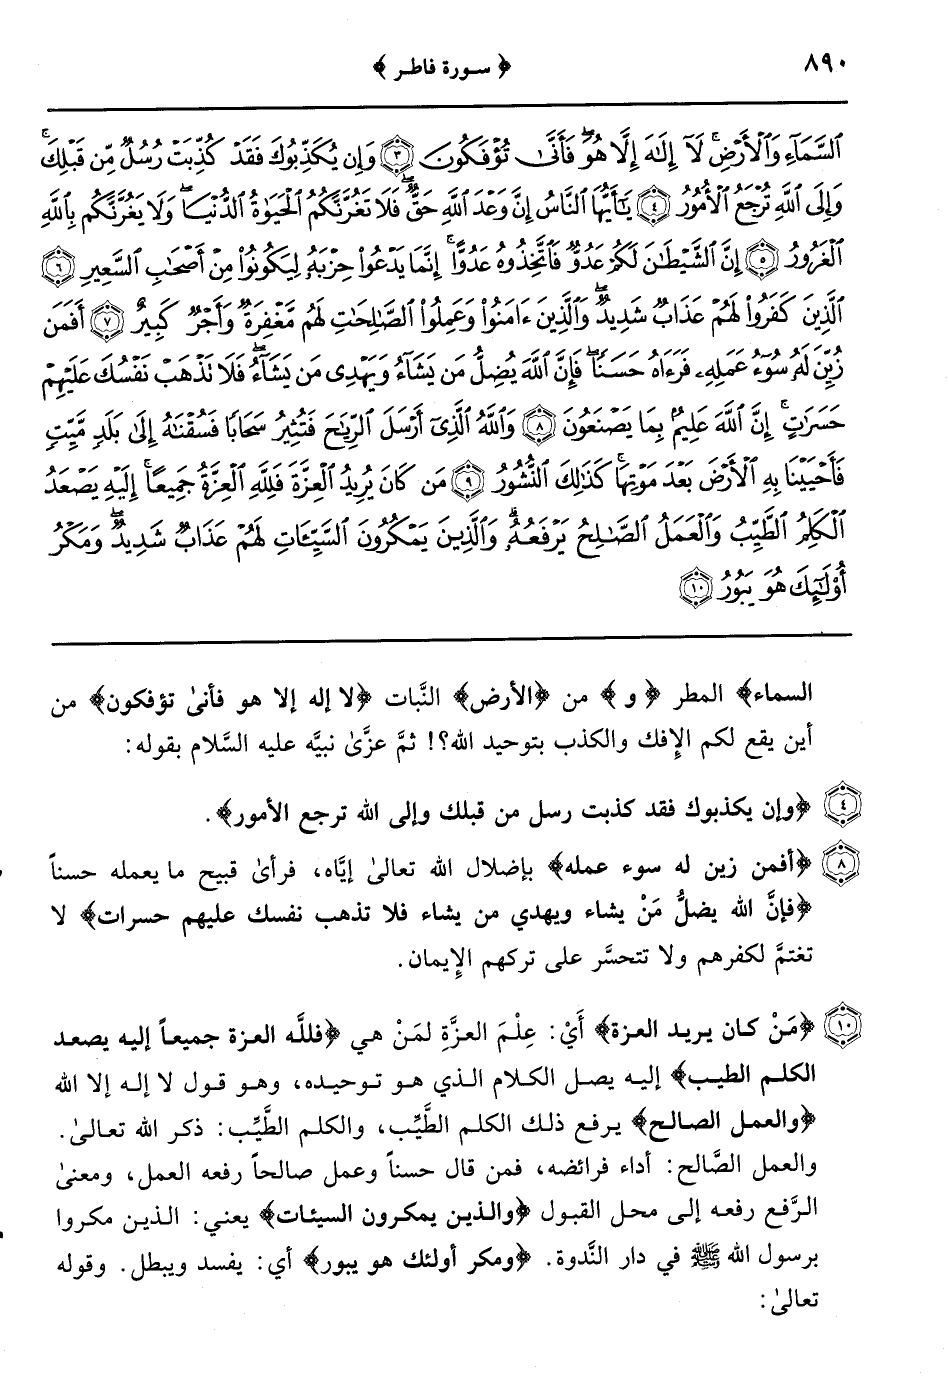 ٨٩٠
﴿ سورة فاطر ﴾
ٱلسَّمَآءِ وَٱلْأَرْضِ ۚ لَآ إِلَٰهَ إِلَّا هُوَ ۖ فَأَنَّىٰ تُؤْفَكُونَ ٣ وَإِن يُكَذِّبُوكَ فَقَدْ كُذِّبَتْ رُسُلٌ مِّن قَبْلِكَ ۚ
وَإِلَى ٱللَّهِ تُرْجَعُ ٱلْأُمُورُ ٤ يَٰٓأَيُّهَا ٱلنَّاسُ إِنَّ وَعْدَ ٱللَّهِ حَقٌّ ۖ فَلَا تَغُرَّنَّكُمُ ٱلْحَيَوٰةُ ٱلدُّنْيَا ۖ وَلَا يَغُرَّنَّكُم بِٱللَّهِ
ٱلْغَرُورُ ٥ إِنَّ ٱلشَّيْطَٰنَ لَكُمْ عَدُوٌّ فَٱتَّخِذُوهُ عَدُوًّا ۚ إِنَّمَا يَدْعُوا۟ حِزْبَهُۥ لِيَكُونُوا۟ مِنْ أَصْحَٰبِ ٱلسَّعِيرِ ٦
ٱلَّذِينَ كَفَرُوا۟ لَهُمْ عَذَابٌ شَدِيدٌ ۖ وَٱلَّذِينَ ءَامَنُوا۟ وَعَمِلُوا۟ ٱلصَّٰلِحَٰتِ لَهُم مَّغْفِرَةٌ وَأَجْرٌ كَبِيرٌ ٧ أَفَمَن
زُيِّنَ لَهُۥ سُوٓءُ عَمَلِهِۦ فَرَءَاهُ حَسَنًا ۖ فَإِنَّ ٱللَّهَ يُضِلُّ مَن يَشَآءُ وَيَهْدِى مَن يَشَآءُ ۖ فَلَا تَذْهَبْ نَفْسُكَ عَلَيْهِمْ
حَسَرَٰتٍ ۚ إِنَّ ٱللَّهَ عَلِيمٌۢ بِمَا يَصْنَعُونَ ٨ وَٱللَّهُ ٱلَّذِىٓ أَرْسَلَ ٱلرِّيَٰحَ فَتُثِيرُ سَحَابًا فَسُقْنَٰهُ إِلَىٰ بَلَدٍ مَّيِّتٍ
فَأَحْيَيْنَا بِهِ ٱلْأَرْضَ بَعْدَ مَوْتِهَا ۚ كَذَٰلِكَ ٱلنُّشُورُ ٩ مَن كَانَ يُرِيدُ ٱلْعِزَّةَ فَلِلَّهِ ٱلْعِزَّةُ جَمِيعًا ۚ إِلَيْهِ يَصْعَدُ
ٱلْكَلِمُ ٱلطَّيِّبُ وَٱلْعَمَلُ ٱلصَّٰلِحُ يَرْفَعُهُۥ ۚ وَٱلَّذِينَ يَمْكُرُونَ ٱلسَّيِّـَٔاتِ لَهُمْ عَذَابٌ شَدِيدٌ ۖ وَمَكْرُ
أُو۟لَٰٓئِكَ هُوَ يَبُورُ ١٠
السماء﴾ المطر ﴿ و ﴾ من ﴿الأرض﴾ النَّبات ﴿لا إله إلا هو فأنىٰ تؤفكون﴾ من
أين يقع لكم الإِفك والكذب بتوحيد الله؟! ثمَّ عزَّىٰ نبيَّه عليه السَّلام بقوله:
٤ ﴿وإن يكذبوك فقد كذبت رسل من قبلك وإلى الله ترجع الأمور﴾.
٨ ﴿أفمن زين له سوء عمله﴾ بإضلال الله تعالىٰ إيَّاه، فرأىٰ قبيح ما يعمله حسناً
﴿فإنَّ الله يضلُّ مَنْ يشاء ويهدي من يشاء فلا تذهب نفسك عليهم حسرات﴾ لا
تغتمَّ لكفرهم ولا تتحسَّر على تركهم الإِيمان.
١٠ ﴿مَنْ كان يريد العزة﴾ أَيْ: عِلْمَ العزَّةِ لمَنْ هي ﴿فللَّه العزة جميعاً إليه يصعد
الكلم الطيب﴾ إليه يصل الكلام الذي هو توحيده، وهو قول لا إله إلا الله
﴿والعمل الصالح﴾ يرفع ذلك الكلم الطَّيِّب، والكلم الطَّيِّب: ذكر الله تعالىٰ.
والعمل الصَّالح: أداء فرائضه، فمن قال حسناً وعمل صالحاً رفعه العمل، ومعنىٰ
الرَّفع رفعه إلى محل القبول ﴿والذين يمكرون السيئات﴾ يعني: الذين مكروا
برسول الله ﷺ في دار النَّدوة. ﴿ومكر أولئك هو يبور﴾ أي: يفسد ويبطل. وقوله
تعالىٰ: